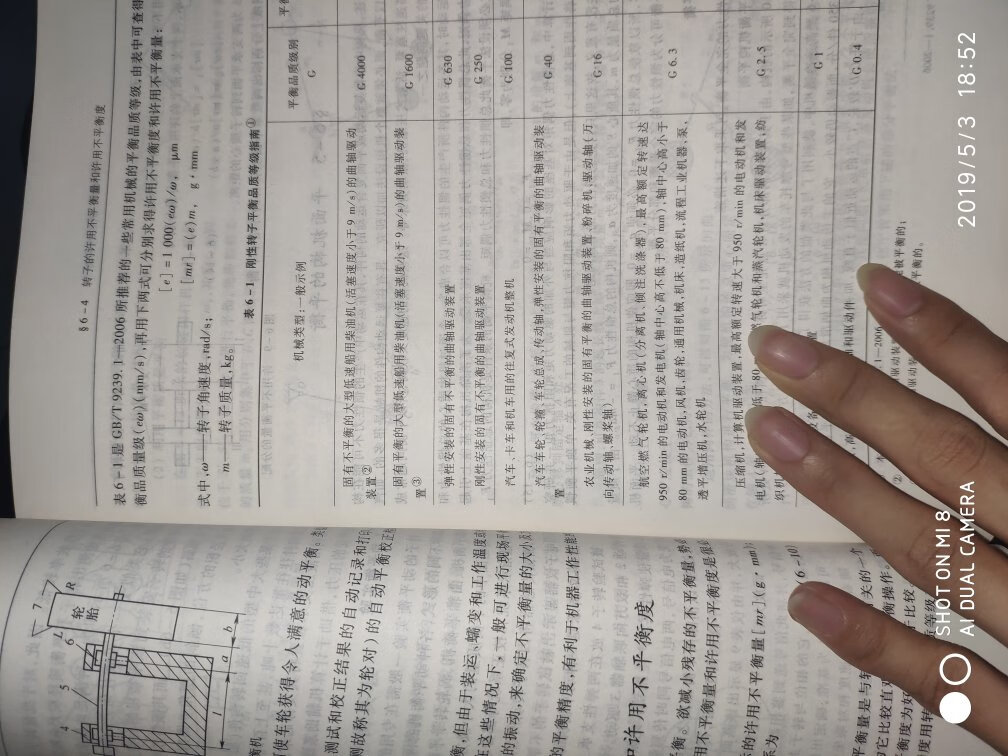 §6-4 转子的许用不平衡量和许用不平衡度
表 6-1 是 GB/T 9239.1—2006 所推荐的一些常用机械的平衡品质等级,由表中可查得
衡品质量级(eω)(mm/s),再用下两式可分别求得许用不平衡度和许用不平衡量:
[e]=1 000(eω)/ω, μm
[mr]=(e)m, g·mm
式中,ω——转子角速度,rad/s;
m——转子质量,kg。
表 6-1 刚性转子平衡品质等级指南①
机械类型:一般示例
平衡品质级别
G
固有不平衡的大型低速船用柴油机(活塞速度小于 9 m/s)的曲轴驱动
装置②
G 4000
固有平衡的大型低速船用柴油机(活塞速度小于 9 m/s)的曲轴驱动装
置③
G 1600
弹性安装的固有不平衡的曲轴驱动装置
G 630
刚性安装的固有不平衡的曲轴驱动装置
G 250
汽车、卡车和机车用的往复式发动机整机
G 100
汽车车轮、轮箍、车轮总成,传动轴,弹性安装的固有平衡的曲轴驱动装
置
G 40
农业机械,刚性安装的固有平衡的曲轴驱动装置,粉碎机,驱动轴(万
向传动轴、螺桨轴)
G 16
航空燃气轮机,离心机(分离机、倾注洗涤器),最高额定转速达
950 r/min 的电动机和发电机(轴中心高不低于 80 mm),轴中心高小于
80 mm 的电动机,风机,齿轮,通用机械,机床,造纸机,流程工业机器,泵,
透平增压机,水轮机
G 6.3
压缩机,计算机驱动装置,最高额定转速大于 950 r/min 的电动机和发
电机(轴 低于 80 燃气轮机和蒸汽轮机,机床驱动装置,纺
织机
G 2.5
G 1
G 0.4
和驱动件
1—2006
平衡的;
平衡的。
轮胎
R
L
7
6
5
4
l
a
b
衡机
使车轮获得令人满意的动平衡。
测试和校正结果的自动记录和打印
则故称其为轮对)的自动平衡校正
衡,但由于装运、蠕变和工作温度
在这些情况下,一般可进行现场平
的振动,来确定不平衡量的大小
的平衡精度,有利于机器工作性能
和许用不平衡度
衡。欲减小残存的不平衡量,势必
用不平衡量和许用不平衡度是很
的许用不平衡量[mr](g·mm),
系为
(6-10)
平衡量是与转 有关的一个
它比较直观 衡操作。
衡度为好 于比较
用转 等级
2019/5/3 18:52
SHOT ON MI 8
AI DUAL CAMERA